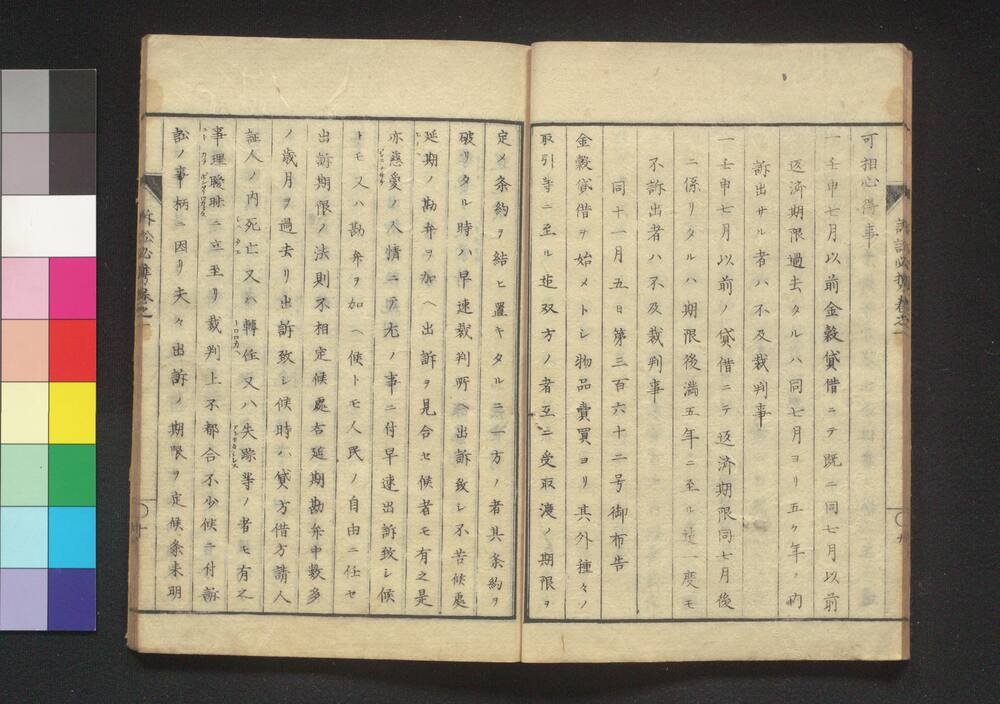 可相心得事
一壬申七月以前金穀貸借ニテ既ニ同七月以前
返済期限過去タルハ同七月ヨリ五ケ年ノ内
訴出サル者ハ不及裁判事
一壬申七月以前ノ貸借ニテ返済期限同七月後
ニ係リタルハ期限後満五年ニ至ル迠一度モ
不訴出者ハ不及裁判事
同十一月五日第三百六十二号御布告
金穀貸借ヲ始メトシ物品賣買ヨリ其外種々ノ
取引等ニ至ル迠双方ノ者互ニ受取渡ノ期限ヲ
定メ条約ヲ結ヒ置キタルニ一方ノ者其条約ヲ
破リタル時ハ早速裁判所ヘ出訴致シ不苦候處
延期ノ勘弁ヲ加ヘ出訴ヲ見合セ候者モ有之是
亦慈愛ノ人情ニテ尤ノ事ニ付早速出訴致シ候
トモ又ハ勘弁ヲ加ヘ候トモ人民ノ自由ニ任セ
出訴期限ノ法則不相定候處右延期勘弁中数多
ノ歳月ヲ過去リ出訴致シ候時ハ貸方借方請人
証人ノ内死亡又ハ轉住又ハ失踪等ノ者モ有之
事理曖昧ニ立至リ裁判上不都合不少候ニ付訴
訟ノ事柄ニ因リ夫々出訴ノ期限ヲ定候条来明
訴訟必携巻之一
九
訴訟必携巻之一
十